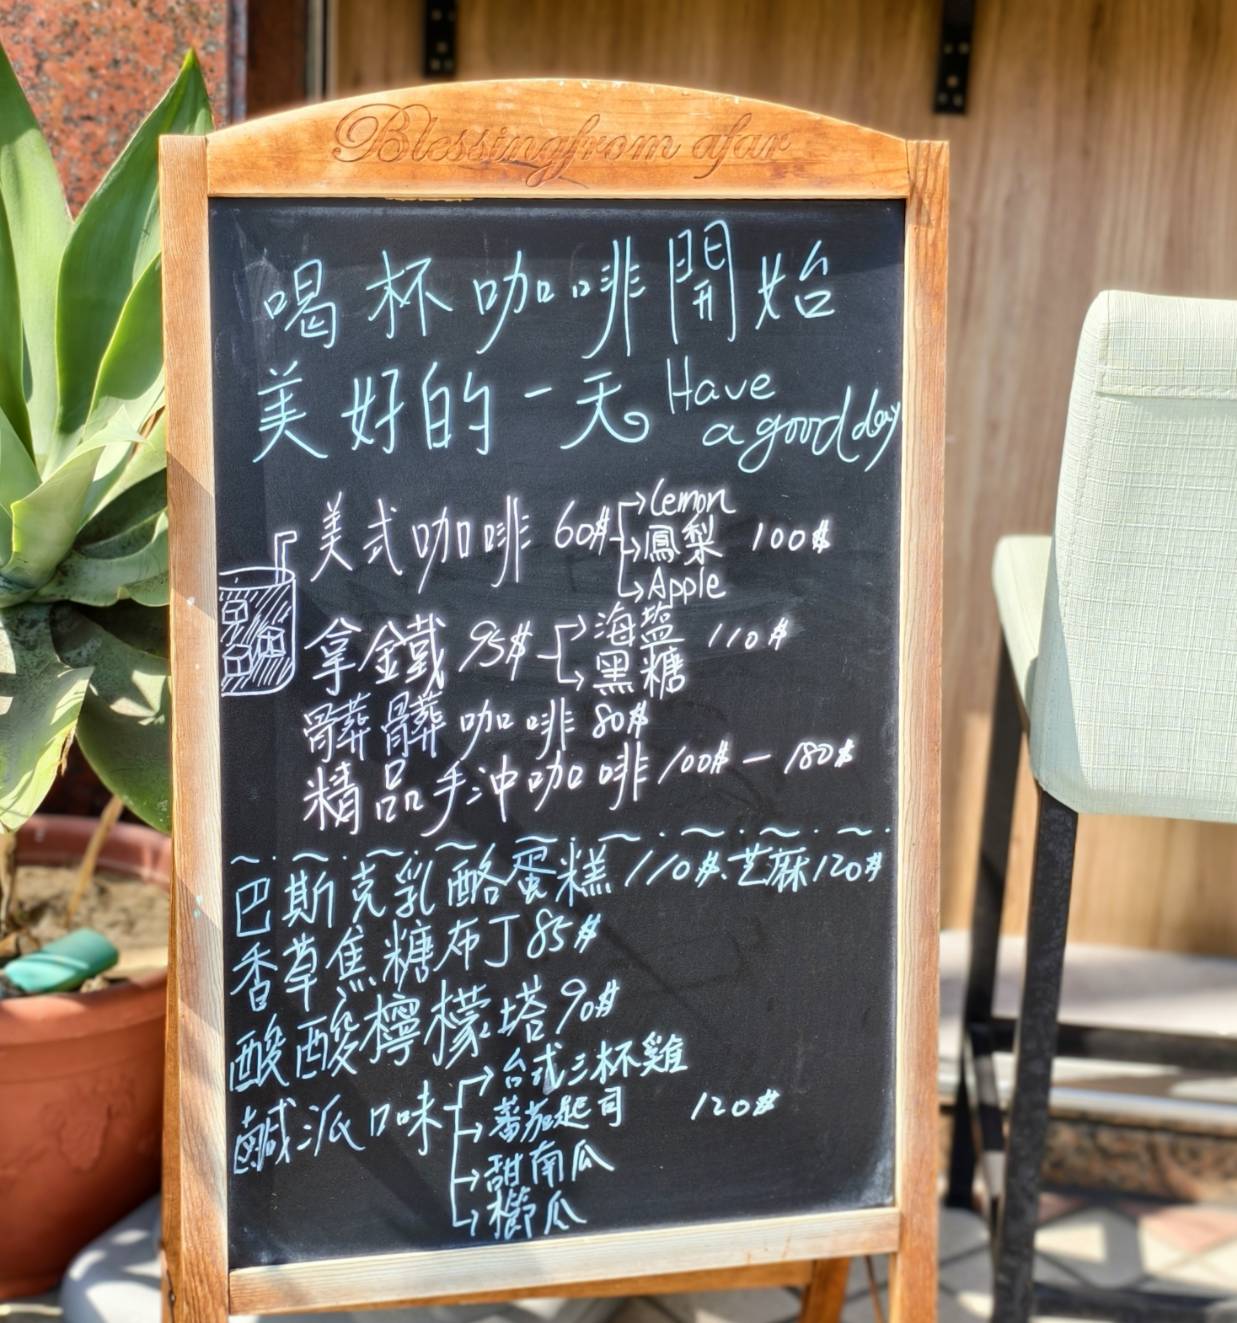 Blessing from afar
喝杯咖啡開始
美好的一天 Have
a good day
美式咖啡 60$ →Lemon
→鳳梨 100$
→Apple
拿鐵 95$ →海塩 110$
→黑糖
髒髒咖啡 80$
精品手沖咖啡 100$ - 180$
巴斯克乳酪蛋糕 110$、芝麻120$
香草焦糖布丁 85$
酸酸檸檬塔 90$
鹹派口味 →台式三杯雞
→蕃茄起司 120$
→甜南瓜
→櫛瓜